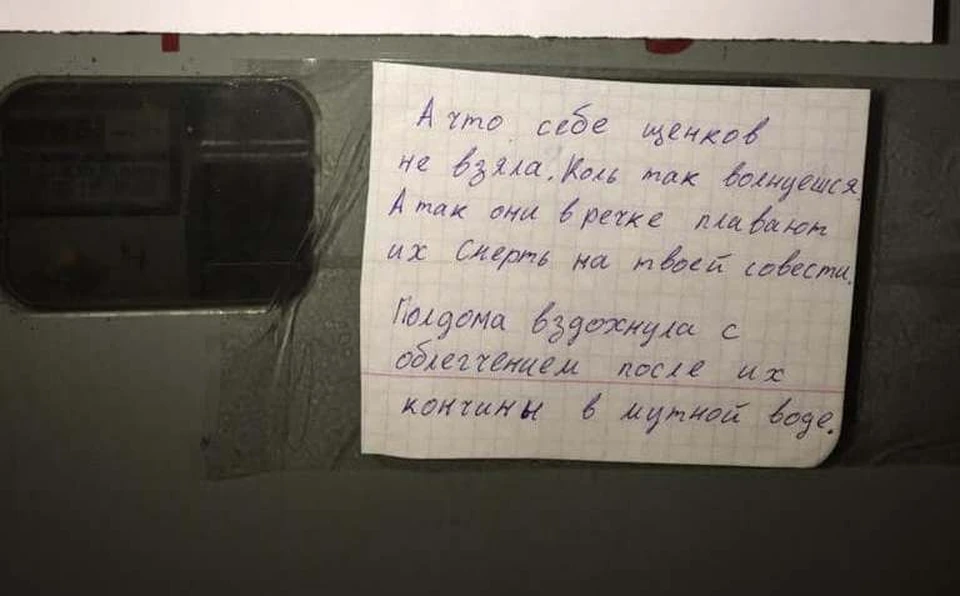 А что себе щенков
не взяла. Коль так волнуешся.
А так они в речке плавают
их смерть на твоей совести.
Полдома вздохнула с
облегчением после их
кончины в мутной воде.